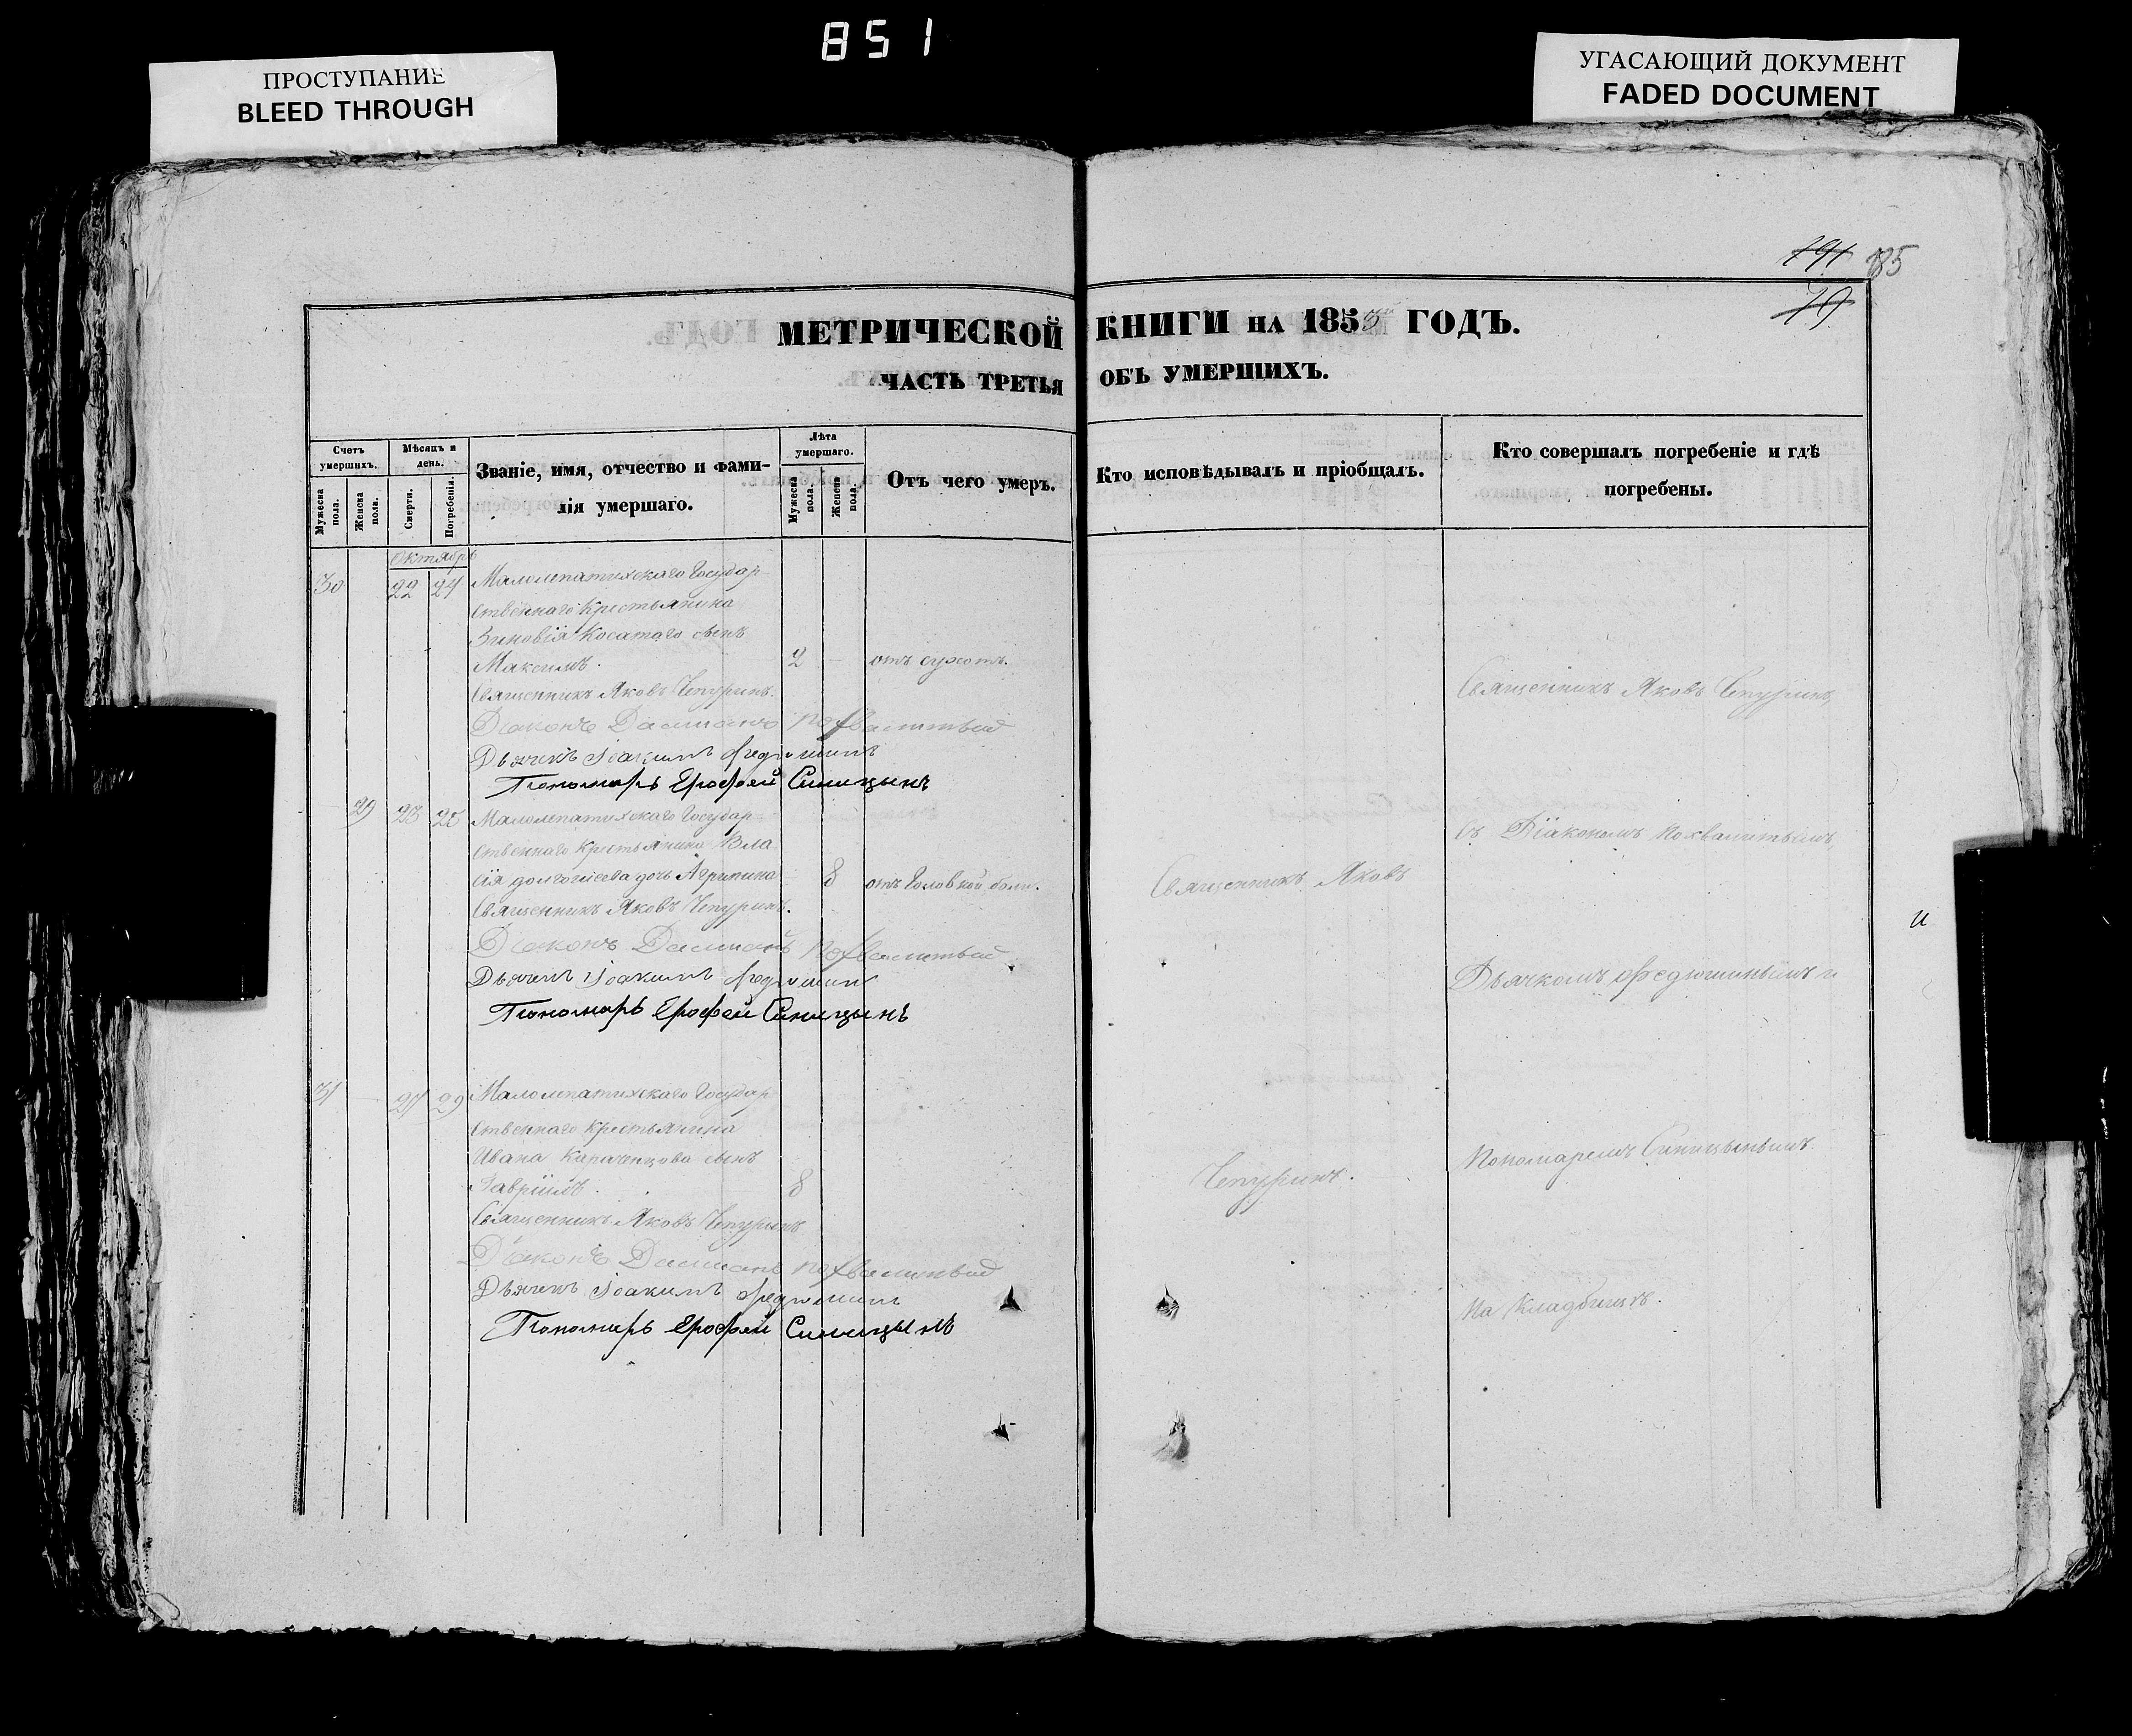 851
ПРОСТУПАНИЕ
BLEED THROUGH
УГАСАЮЩИЙ ДОКУМЕНТ
FADED DOCUMENT
185
79
МЕТРИЧЕСКОЙ КНИГИ НА 1853 ГОДЪ.
ЧАСТЬ ТРЕТЬЯ ОБЪ УМЕРШИХЪ.
Счетъ умершихъ.
Мужеска пола.
Женска пола.
Мѣсяцъ и день.
Смерти.
Погребенія.
Званіе, имя, отчество и фами-
лія умершаго.
Лѣта умершаго.
Мужеска пола.
Женска пола.
Отъ чего умеръ.
Кто исповѣдывалъ и пріобщалъ.
Кто совершалъ погребеніе и гдѣ
погребены.
Октябрь
30 22 24 Малолепатихскаго Государ
ственнаго крестьянина
Зиновія Косатаго сынъ
Максимъ. 2 отъ сухотъ.
Священникъ Яковъ Чепуринъ.
Діаконъ Даміанъ Похвалитый
Дьячекъ Іоакимъ Федюшинъ
Пономарь Ерофей Синицынъ
29 23 25 Малолепатихскаго Государ-
ственнаго крестьянина Вла
сія дочь Агрипина 8 отъ головной боли.
Священникъ Яковъ Чепуринъ.
Діаконъ Даміанъ Похвалитый
Дьячекъ Іоакимъ Федюшинъ
Пономарь Ерофей Синицынъ
31 27 29 Малолепатихскаго Государ
ственнаго крестьянина
Ивана сынъ
Гавріилъ. 8
Священникъ Яковъ Чепуринъ
Діаконъ Даміанъ Похвалитый
Дьячекъ Іоакимъ Федюшинъ
Пономарь Ерофей Синицынъ
Священникъ Яковъ
Чепуринъ.
Священникъ Яковъ Чепуринъ,
съ Діакономъ Похвалитымъ,
Дьячкомъ Федюшинымъ и
Пономаремъ Синицынымъ.
на кладбищѣ.
и